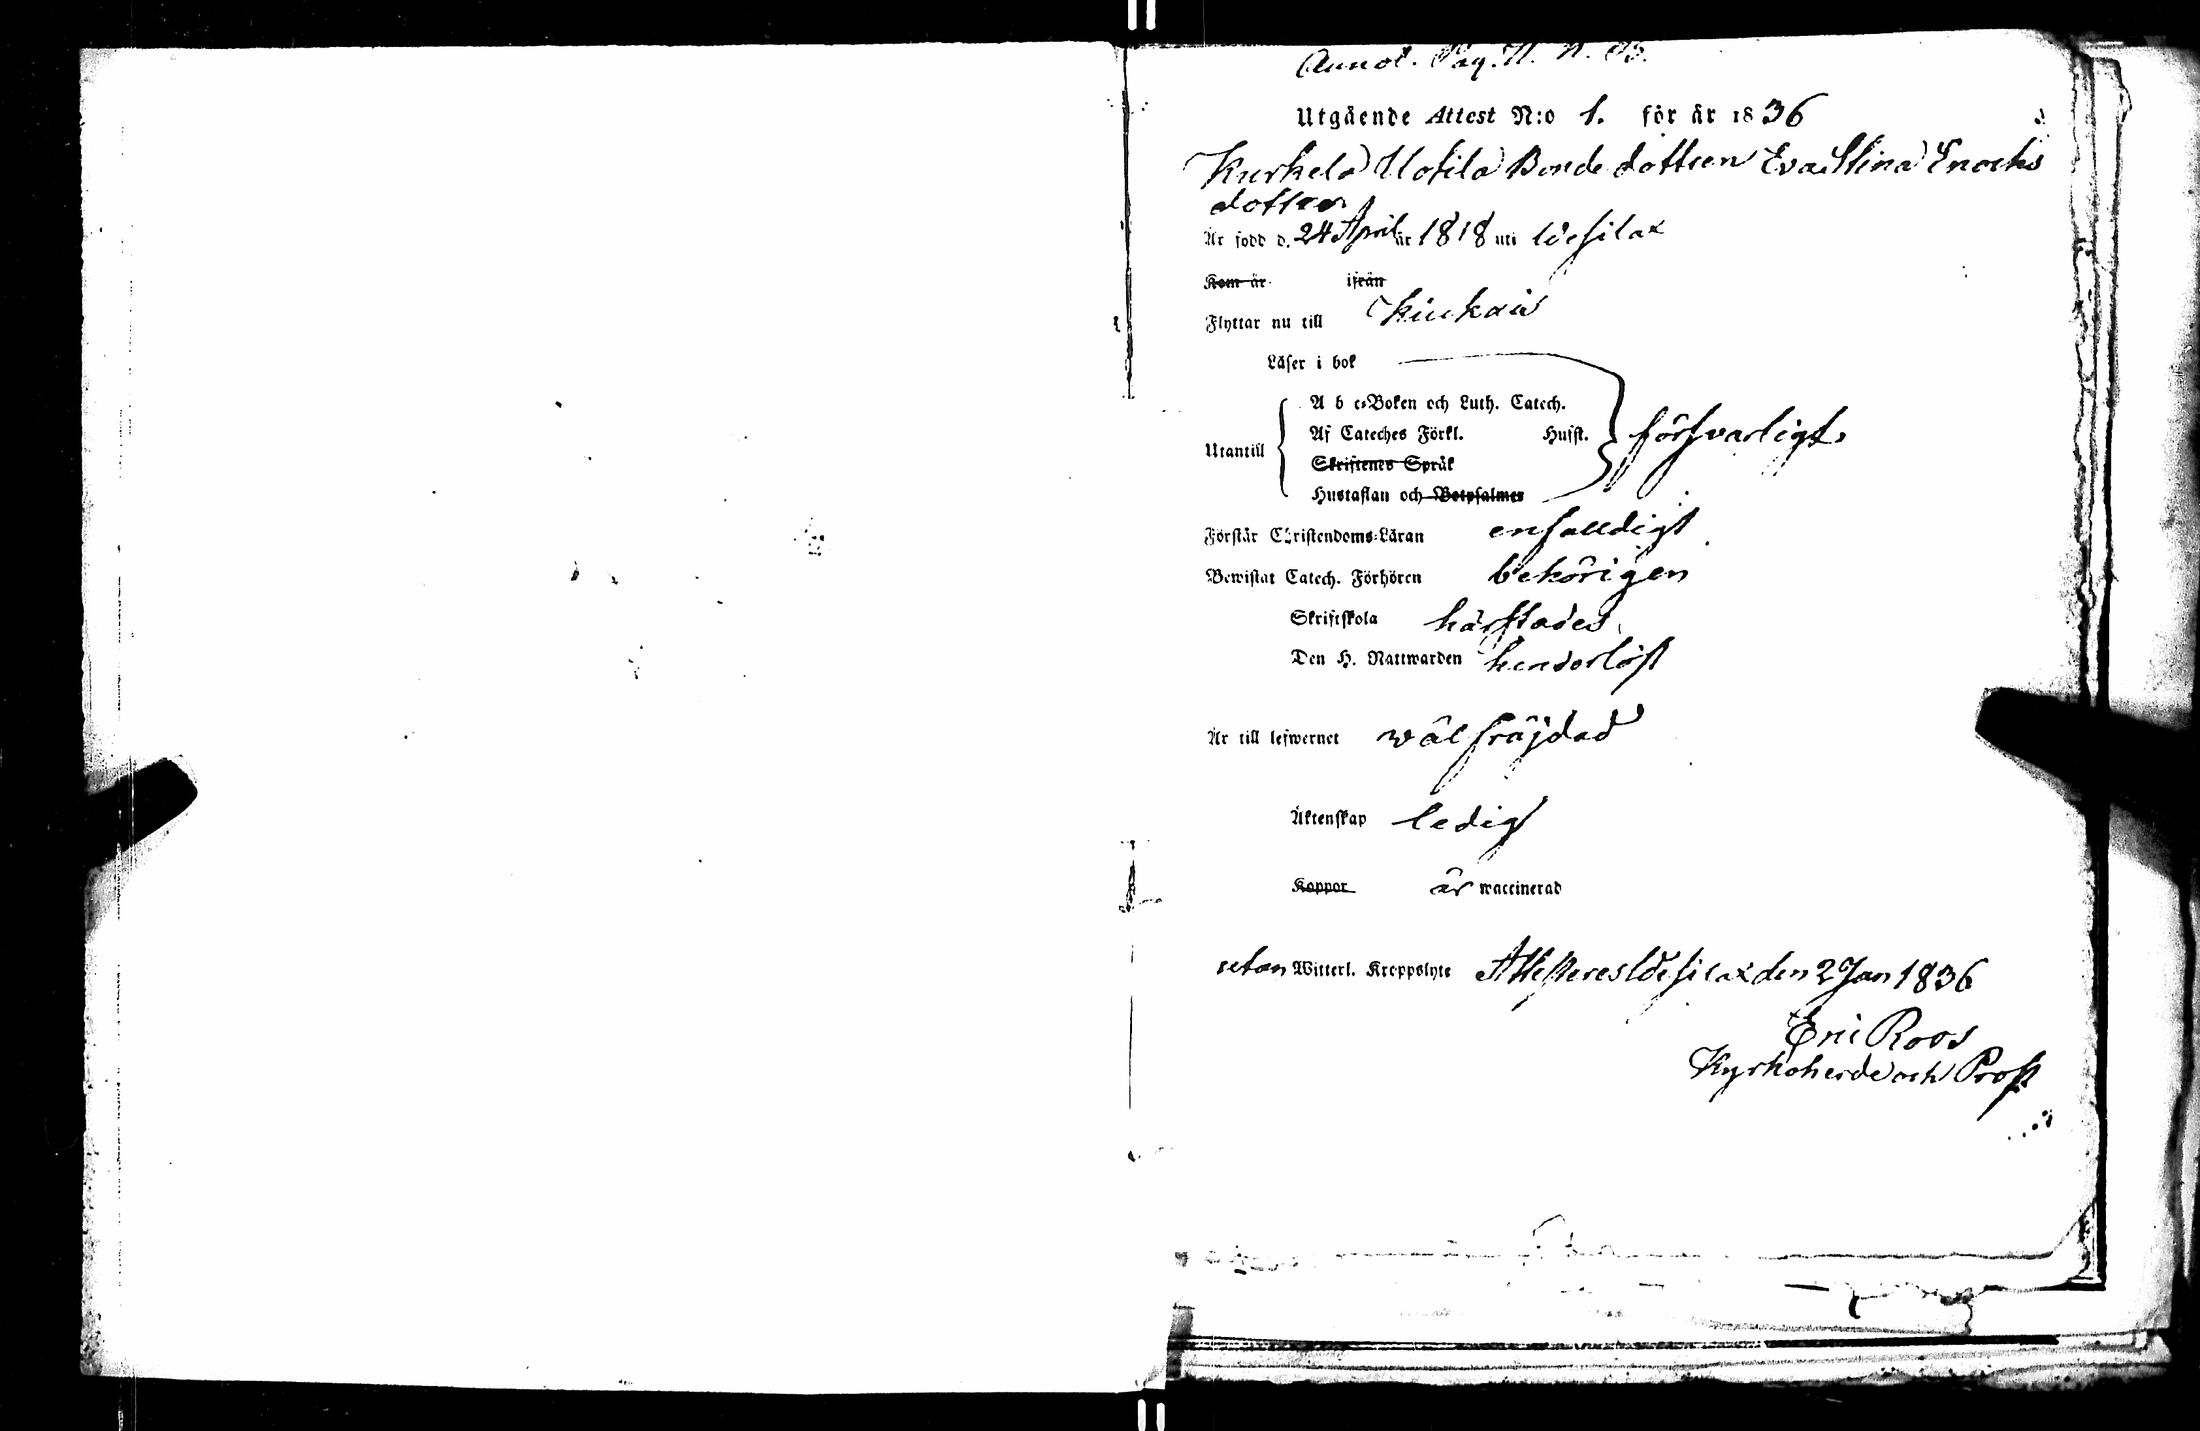 Annot. Pag. N. N. 
Utgående Attest N:o 1. för år 1836
Kurkela Uotila Bonde dottren Eva Stina Enochs
dotter
Är född d. 24 April år 1818 uti Wesilax
Kom år ifrån
Flyttar nu till Kiukais
Läser i bok
A b c-Boken och Luth. Catech.
Af Cateches Förkl. Hufst. försvarligt
Utantill
Skriftenes Språk
Hustaflan och Botpsalmer
Förstår Christendoms-Läran enfalldigt
Bewistat Catech. Förhören behörigen
Skriftskola härstädes
Den H. Nattwarden hinderlöst
Är till lefwernet wälfräjdad
Äktenskap ledig
Koppor är waccinerad
utan Witterl. Kroppslyte Attesteres Wesilax den 2 Jan 1836
Eric Roos
Kyrkoherde och Prost